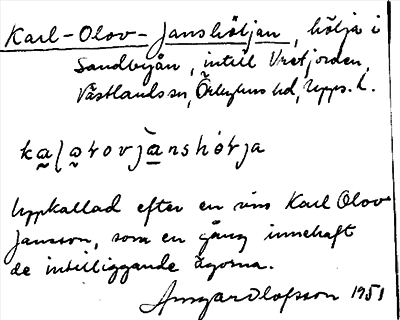 Karl-Olov-Janshöljan, hölja i
Sandbyån, intill Vretjorden,
Västlands sn, Örbyhus hd, Upps. l.
Uppkallad efter en viss Karl Olov
Jansson, som en gång innehaft
de intilliggande ägorna.
Ansgar Olofsson 1951